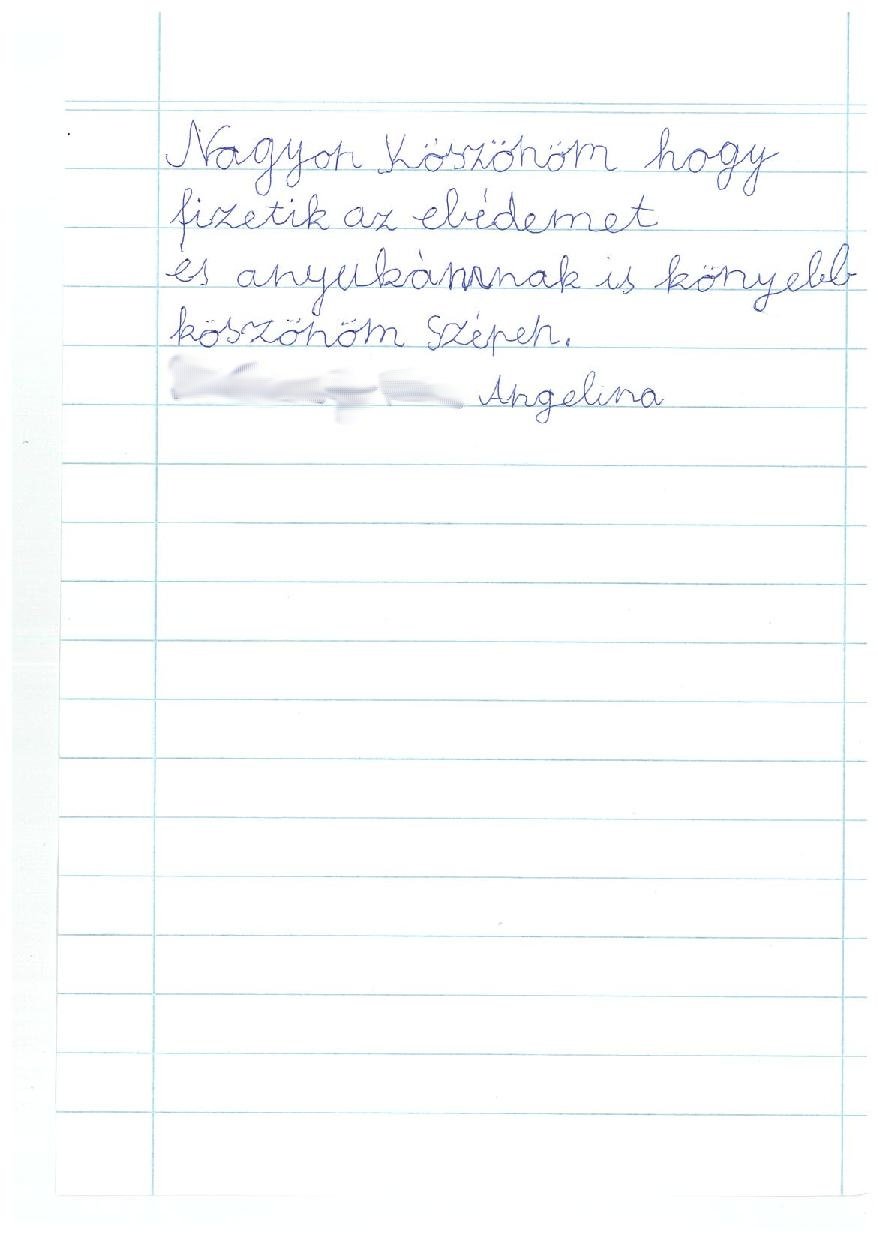 Nagyon Köszönöm hogy
fizetik az ebédemet
és anyukámnak is könyebb
köszönöm Szépen.
Angelina